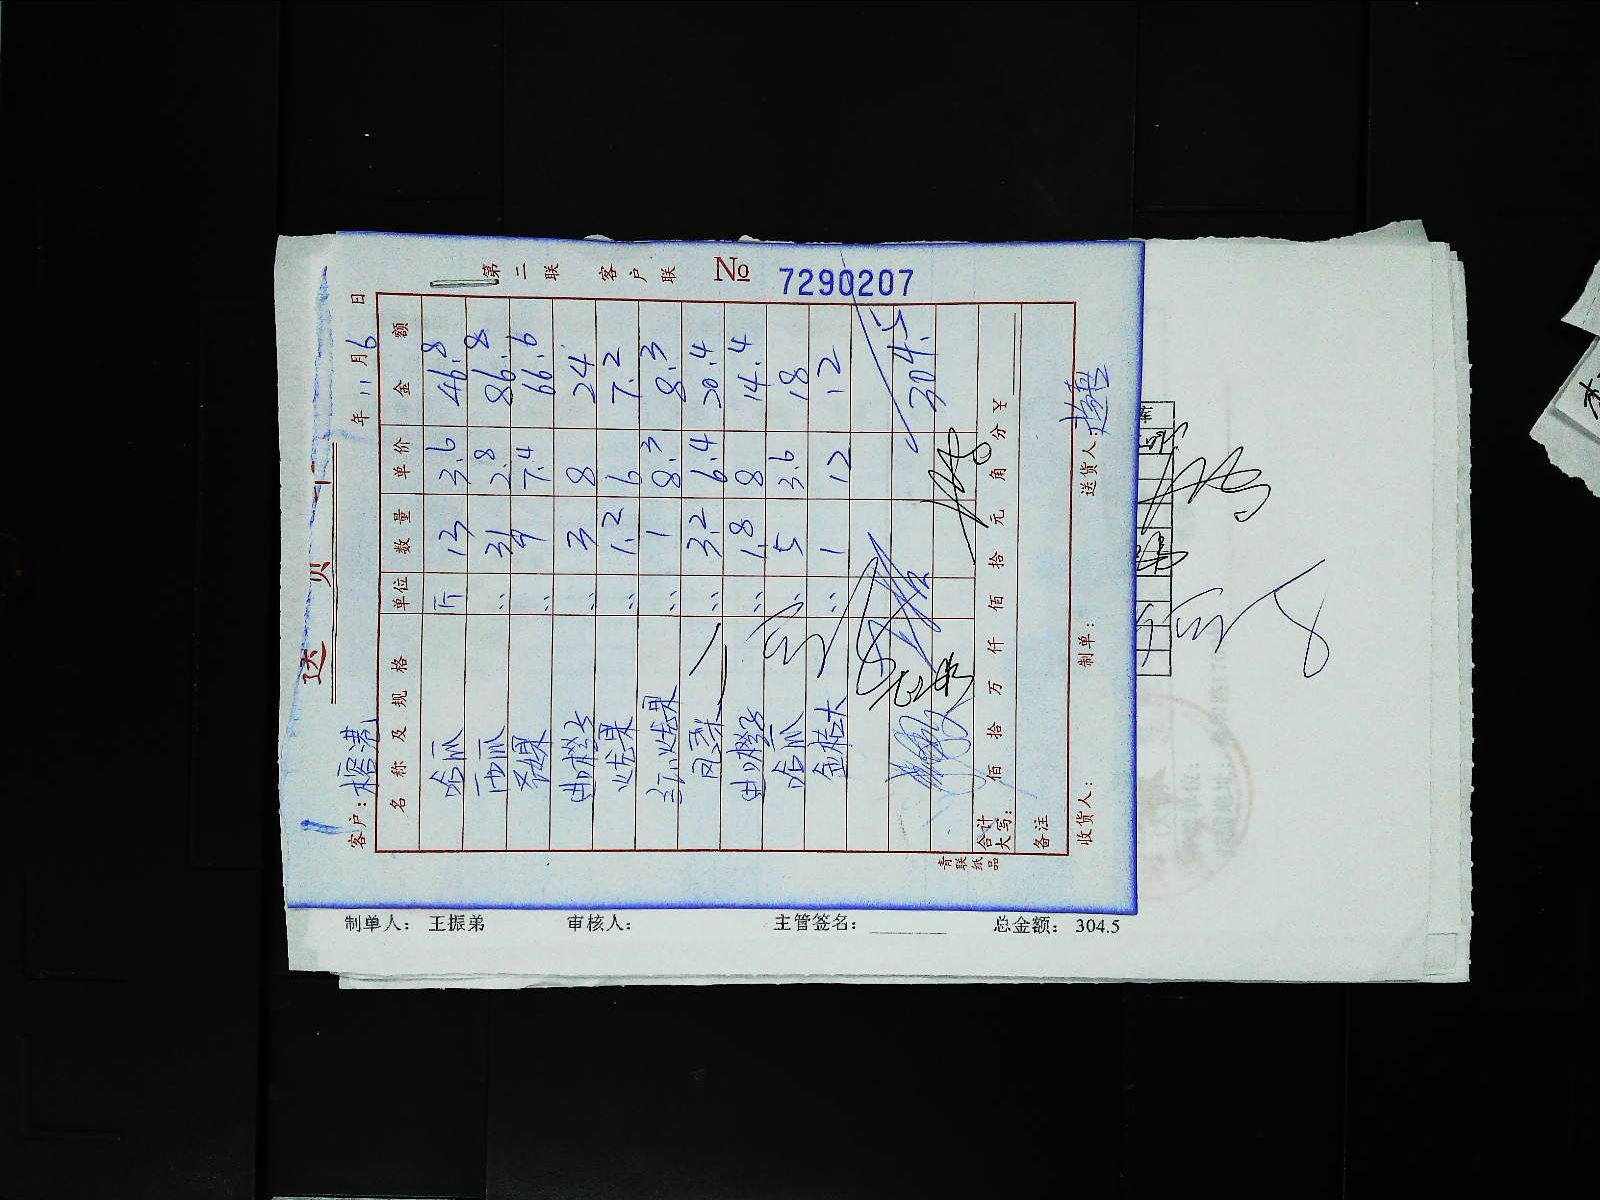 送 货 单
第二联 客户联 № 7290207
客户: 檀港 年 11 月 6 日
名称及规格 单位 数量 单价 金额
哈瓜 斤 13 3.6 46.8
西瓜 〃 31 2.8 86.8
奇异果 〃 9 7.4 66.6
甜橙子 〃 3 8 24
火龙果 〃 1.2 6 7.2
红心火龙果 〃 1 8.3 8.3
凤梨 〃 3.2 6.4 20.4
甜橙子 〃 1.8 8 14.4
哈瓜 〃 5 3.6 18
金桔大 〃 1 12 12
304.5
合计大写: 佰 拾 万 仟 佰 拾 元 角 分 ¥
备注
收货人: 制单: 送货人:
青联纸品
制单人: 王振弟 审核人: 主管签名: 总金额: 304.5